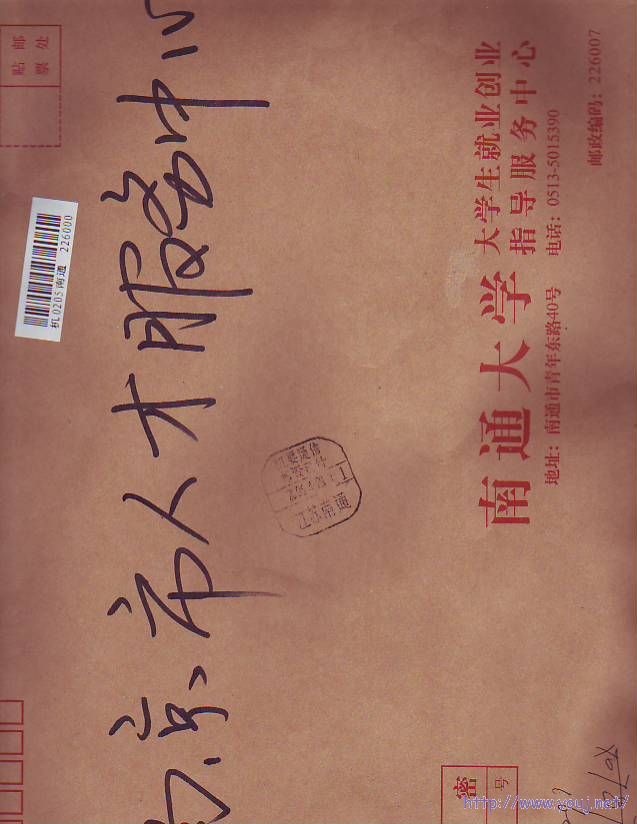 贴邮
票处
京市人才服务中心
机0205南通 226000
江苏南通
南通大学
大学生就业创业
指导服务中心
地址：南通市青年东路40号 电话：0513-5015390
邮政编码：226007
密
号
http://www.youj.net/